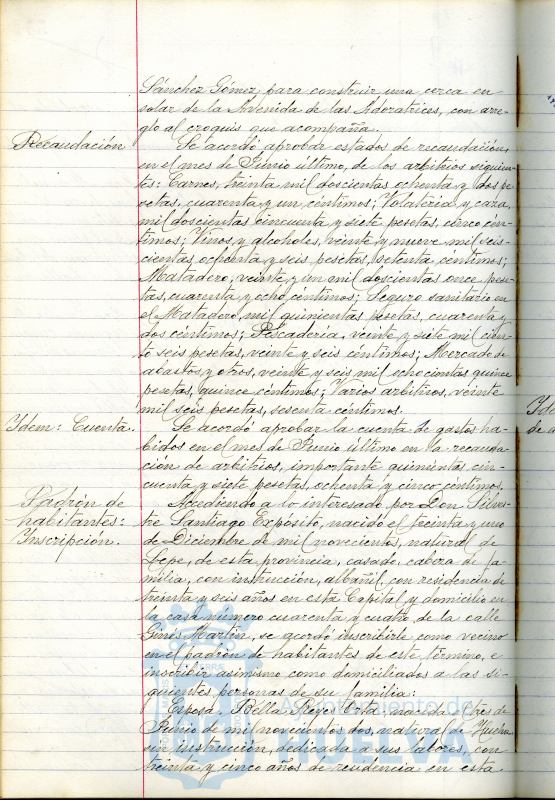 Sánchez Gómez, para construir una cerca en
solar de la Avenida de las Adoratrices, con arre-
glo al croquis que acompaña.
Recaudación
Se acordó aprobar estados de recaudación,
en el mes de Junio último, de los arbitrios siguien-
tes: Carnes, treinta mil doscientas ochenta y dos pe-
setas, cuarenta y un céntimos; Volatería y caza,
mil doscientas cincuenta y siete pesetas, cinco cén-
timos; Vinos y alcoholes, veinte y nueve mil seis-
cientas ochenta y seis pesetas, setenta céntimos;
Matadero, veinte y un mil doscientas once pese-
tas, cuarenta y ocho céntimos; Seguro sanitario en
el Matadero, mil quinientas pesetas, cuarenta y
dos céntimos; Pescadería, veinte y siete mil cien-
to seis pesetas, veinte y seis céntimos; Mercado de
abastos y otros, veinte y seis mil ochocientas quince
pesetas, quince céntimos; Varios arbitrios, veinte
mil seis pesetas, sesenta céntimos.
Idem: Cuenta.
Se acordó aprobar la cuenta de gastos ha-
bidos en el mes de Junio último en la recauda-
ción de arbitrios, importante quinientas cin-
cuenta y siete pesetas, ochenta y cinco céntimos.
Padrón de
habitantes:
Inscripción.
Accediendo a lo interesado por Don Silves-
tre Santiago Expósito, nacido el treinta y uno
de Diciembre de mil novecientos, natural de
Lepe, de esta provincia, casado, cabeza de fa-
milia, con instrucción, albañil, con residencia de
treinta y seis años en esta Capital y domicilio en
la casa número cuarenta y cuatro de la calle
Ginés Martín, se acordó inscribirle como vecino
en el padrón de habitantes de este término, e
inscribir asimismo como domiciliados a las si-
guientes personas de su familia:
Esposa, Bella Reyes Oria, nacida el tres de
Junio de mil novecientos dos, natural de Huelva,
sin instrucción, dedicada a sus labores, con
treinta y cinco años de residencia en esta
Ayuntamiento de
HUELVA